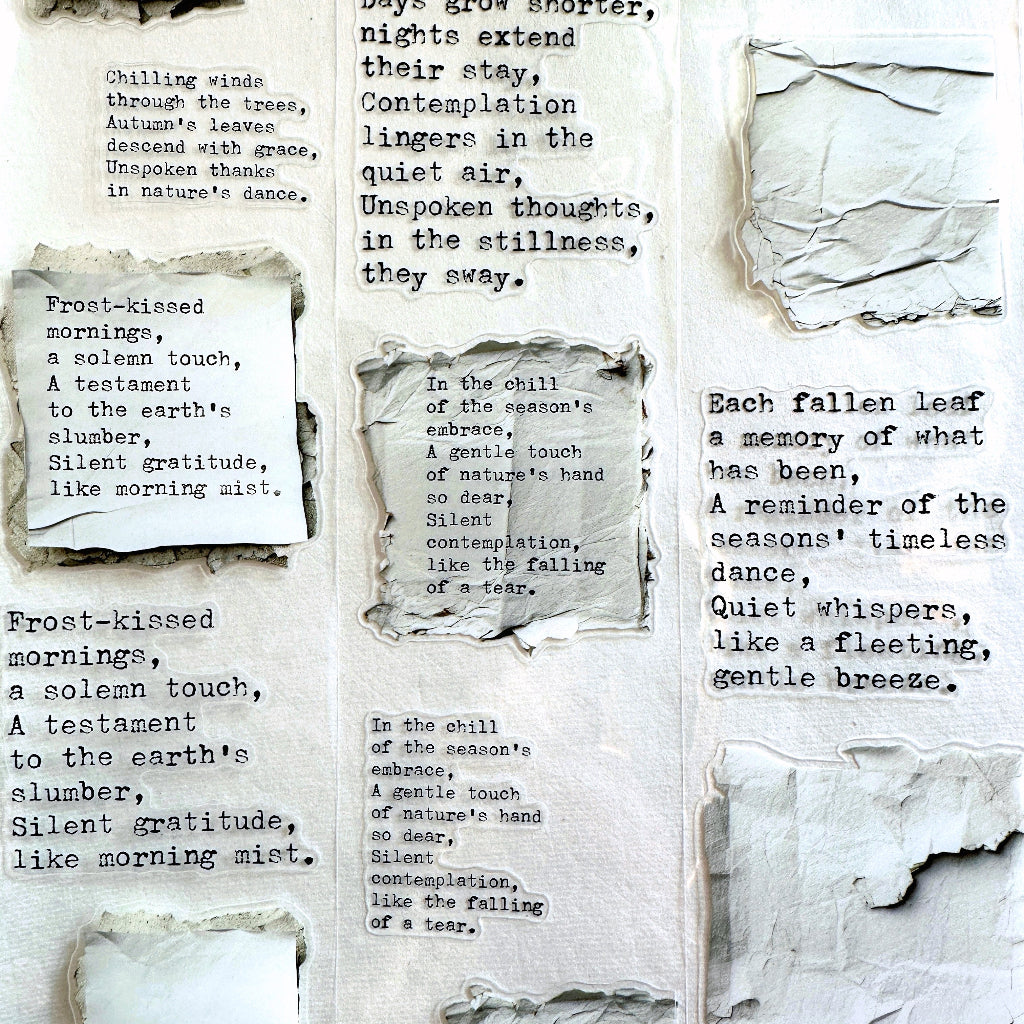 Chilling winds
through the trees,
Autumn's leaves
descend with grace,
Unspoken thanks
in nature's dance.
Frost-kissed
mornings,
a solemn touch,
A testament
to the earth's
slumber,
Silent gratitude,
like morning mist.
Frost-kissed
mornings,
a solemn touch,
A testament
to the earth's
slumber,
Silent gratitude,
like morning mist.
Days grow shorter,
nights extend
their stay,
Contemplation
lingers in the
quiet air,
Unspoken thoughts,
in the stillness,
they sway.
In the chill
of the season's
embrace,
A gentle touch
of nature's hand
so dear,
Silent
contemplation,
like the falling
of a tear.
In the chill
of the season's
embrace,
A gentle touch
of nature's hand
so dear,
Silent
contemplation,
like the falling
of a tear.
Each fallen leaf
a memory of what
has been,
A reminder of the
seasons' timeless
dance,
Quiet whispers,
like a fleeting,
gentle breeze.